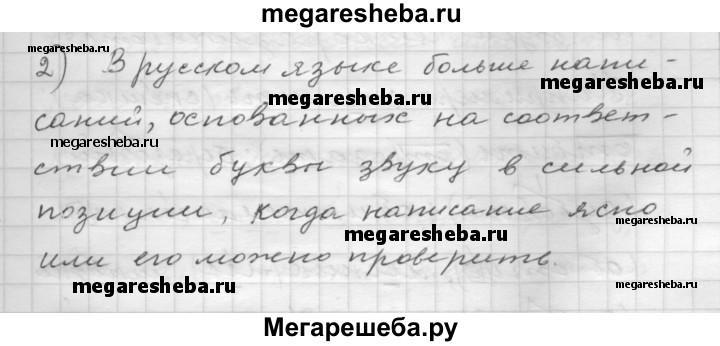 megaresheba.ru
megaresheba.ru
2) В русском языке больше напи-
megaresheba.ru
megaresheba.ru
саний, основанных на соответ-
ствии буквы звуку в сильной
позиции, когда написание ясно
megaresheba.ru
или его можно проверить.
megaresheba.ru
megaresheba.ru
Мегарешеба.ру